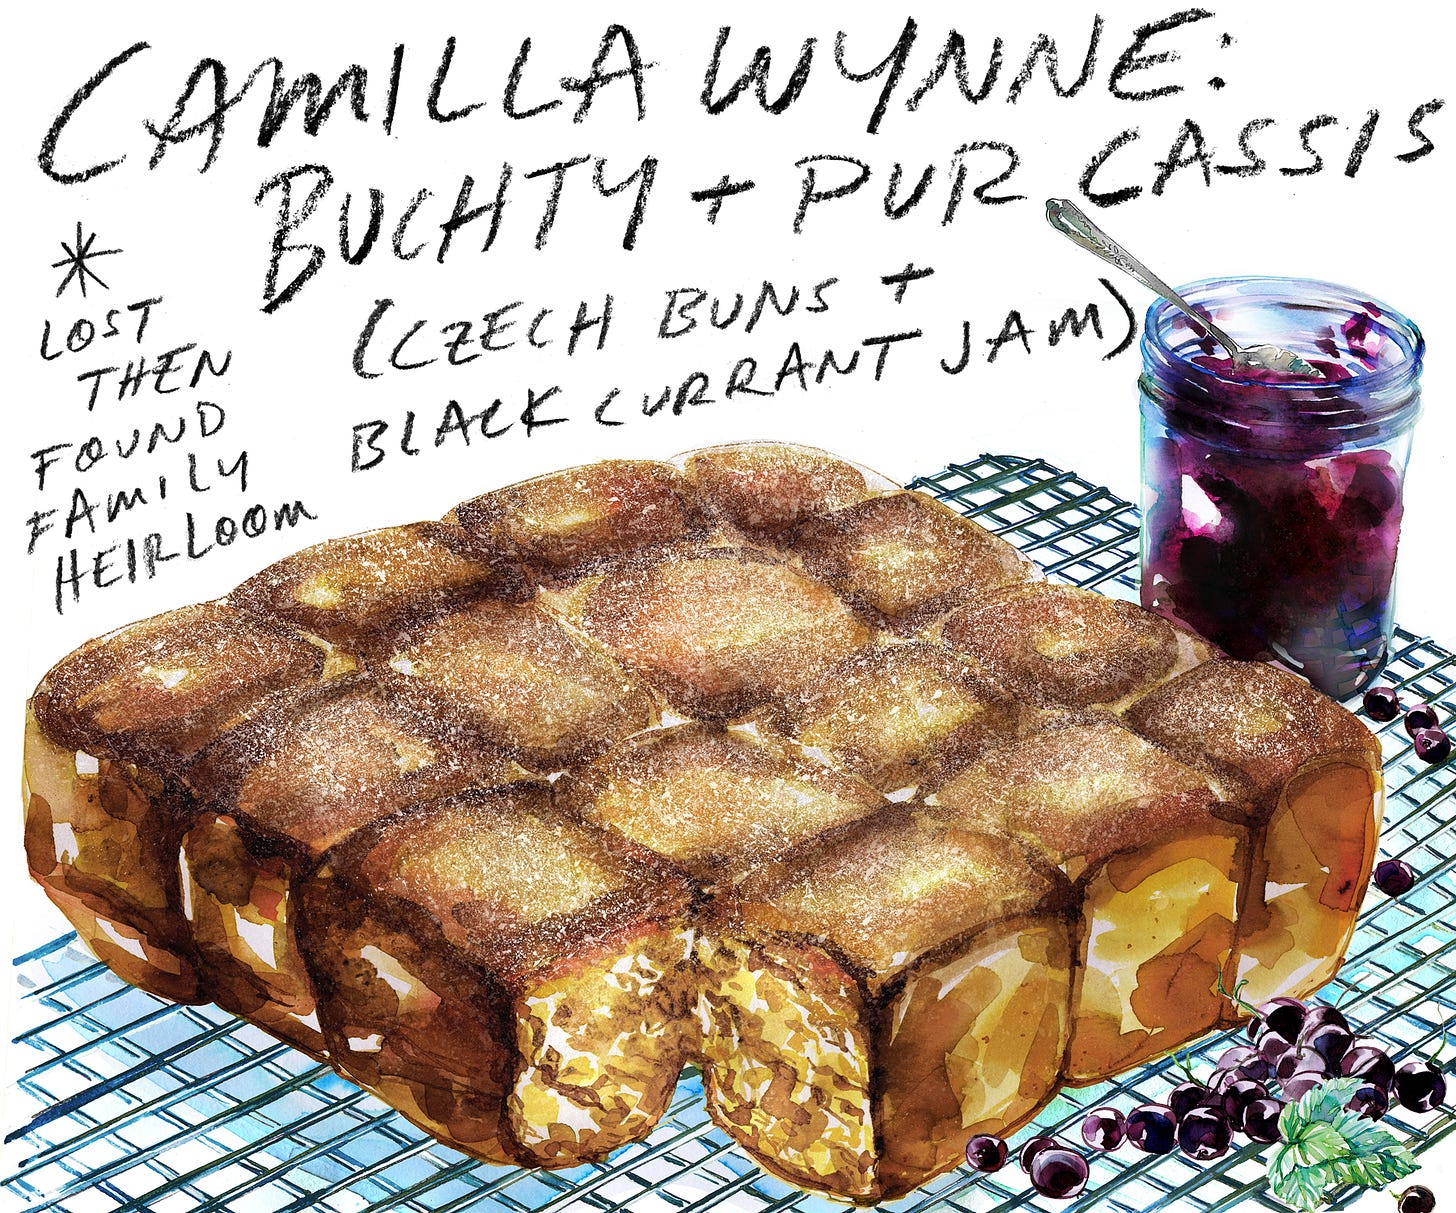 CAMILLA WYNNE:
BUCHTY + PUR CASSIS
(CZECH BUNS +
BLACK CURRANT JAM)
*
LOST
THEN
FOUND
FAMILY
HEIRLOOM